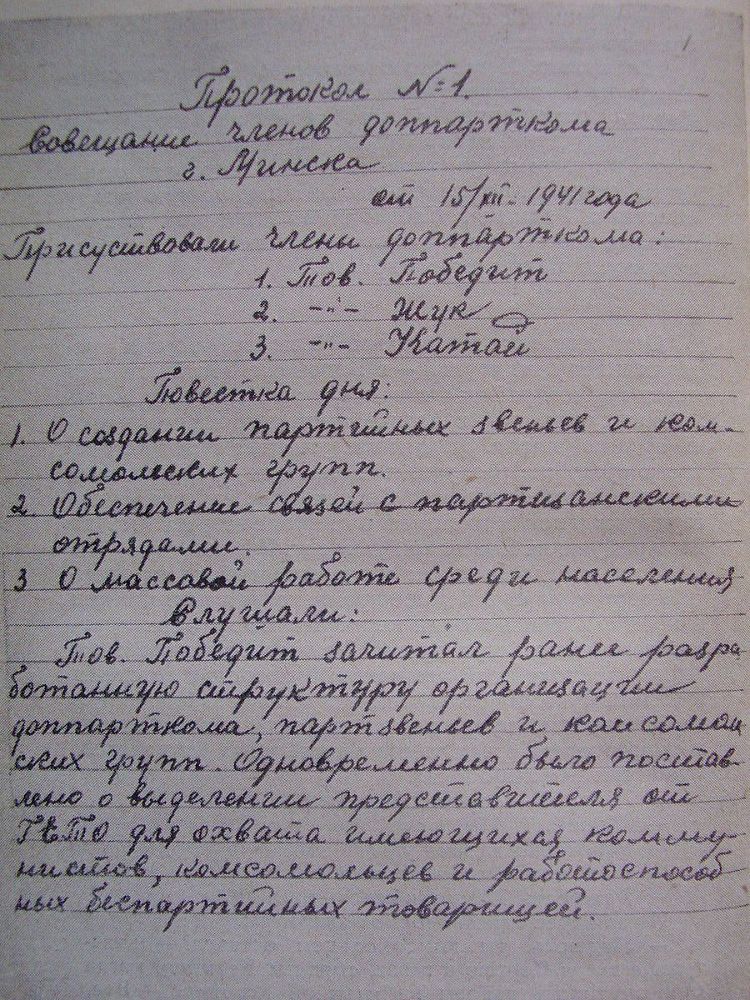 1
Протокол № 1.
Совещание членов доппарткома
г. Минска
от 15/XII - 1941 года
Присуствовали члены доппарткома:
1. Тов. Победит
2. -"- Жук
3. -"- Катай
Повестка дня:
1. О создании партийных звеньев и ком-
сомольских групп.
2. Обеспечение связей с партизанскими
отрядами.
3 О массовой работе среди населения
Слушали:
Тов. Победит зачитал ранее разра
ботанную структуру организации
доппарткома, партзвеньев и комсомоль
ских групп. Одновременно было постав-
лено о выделении представителя от
ГЕТО для охвата имеющихся комму-
нистов, комсомольцев и работоспособ
ных беспартийных товарищей.